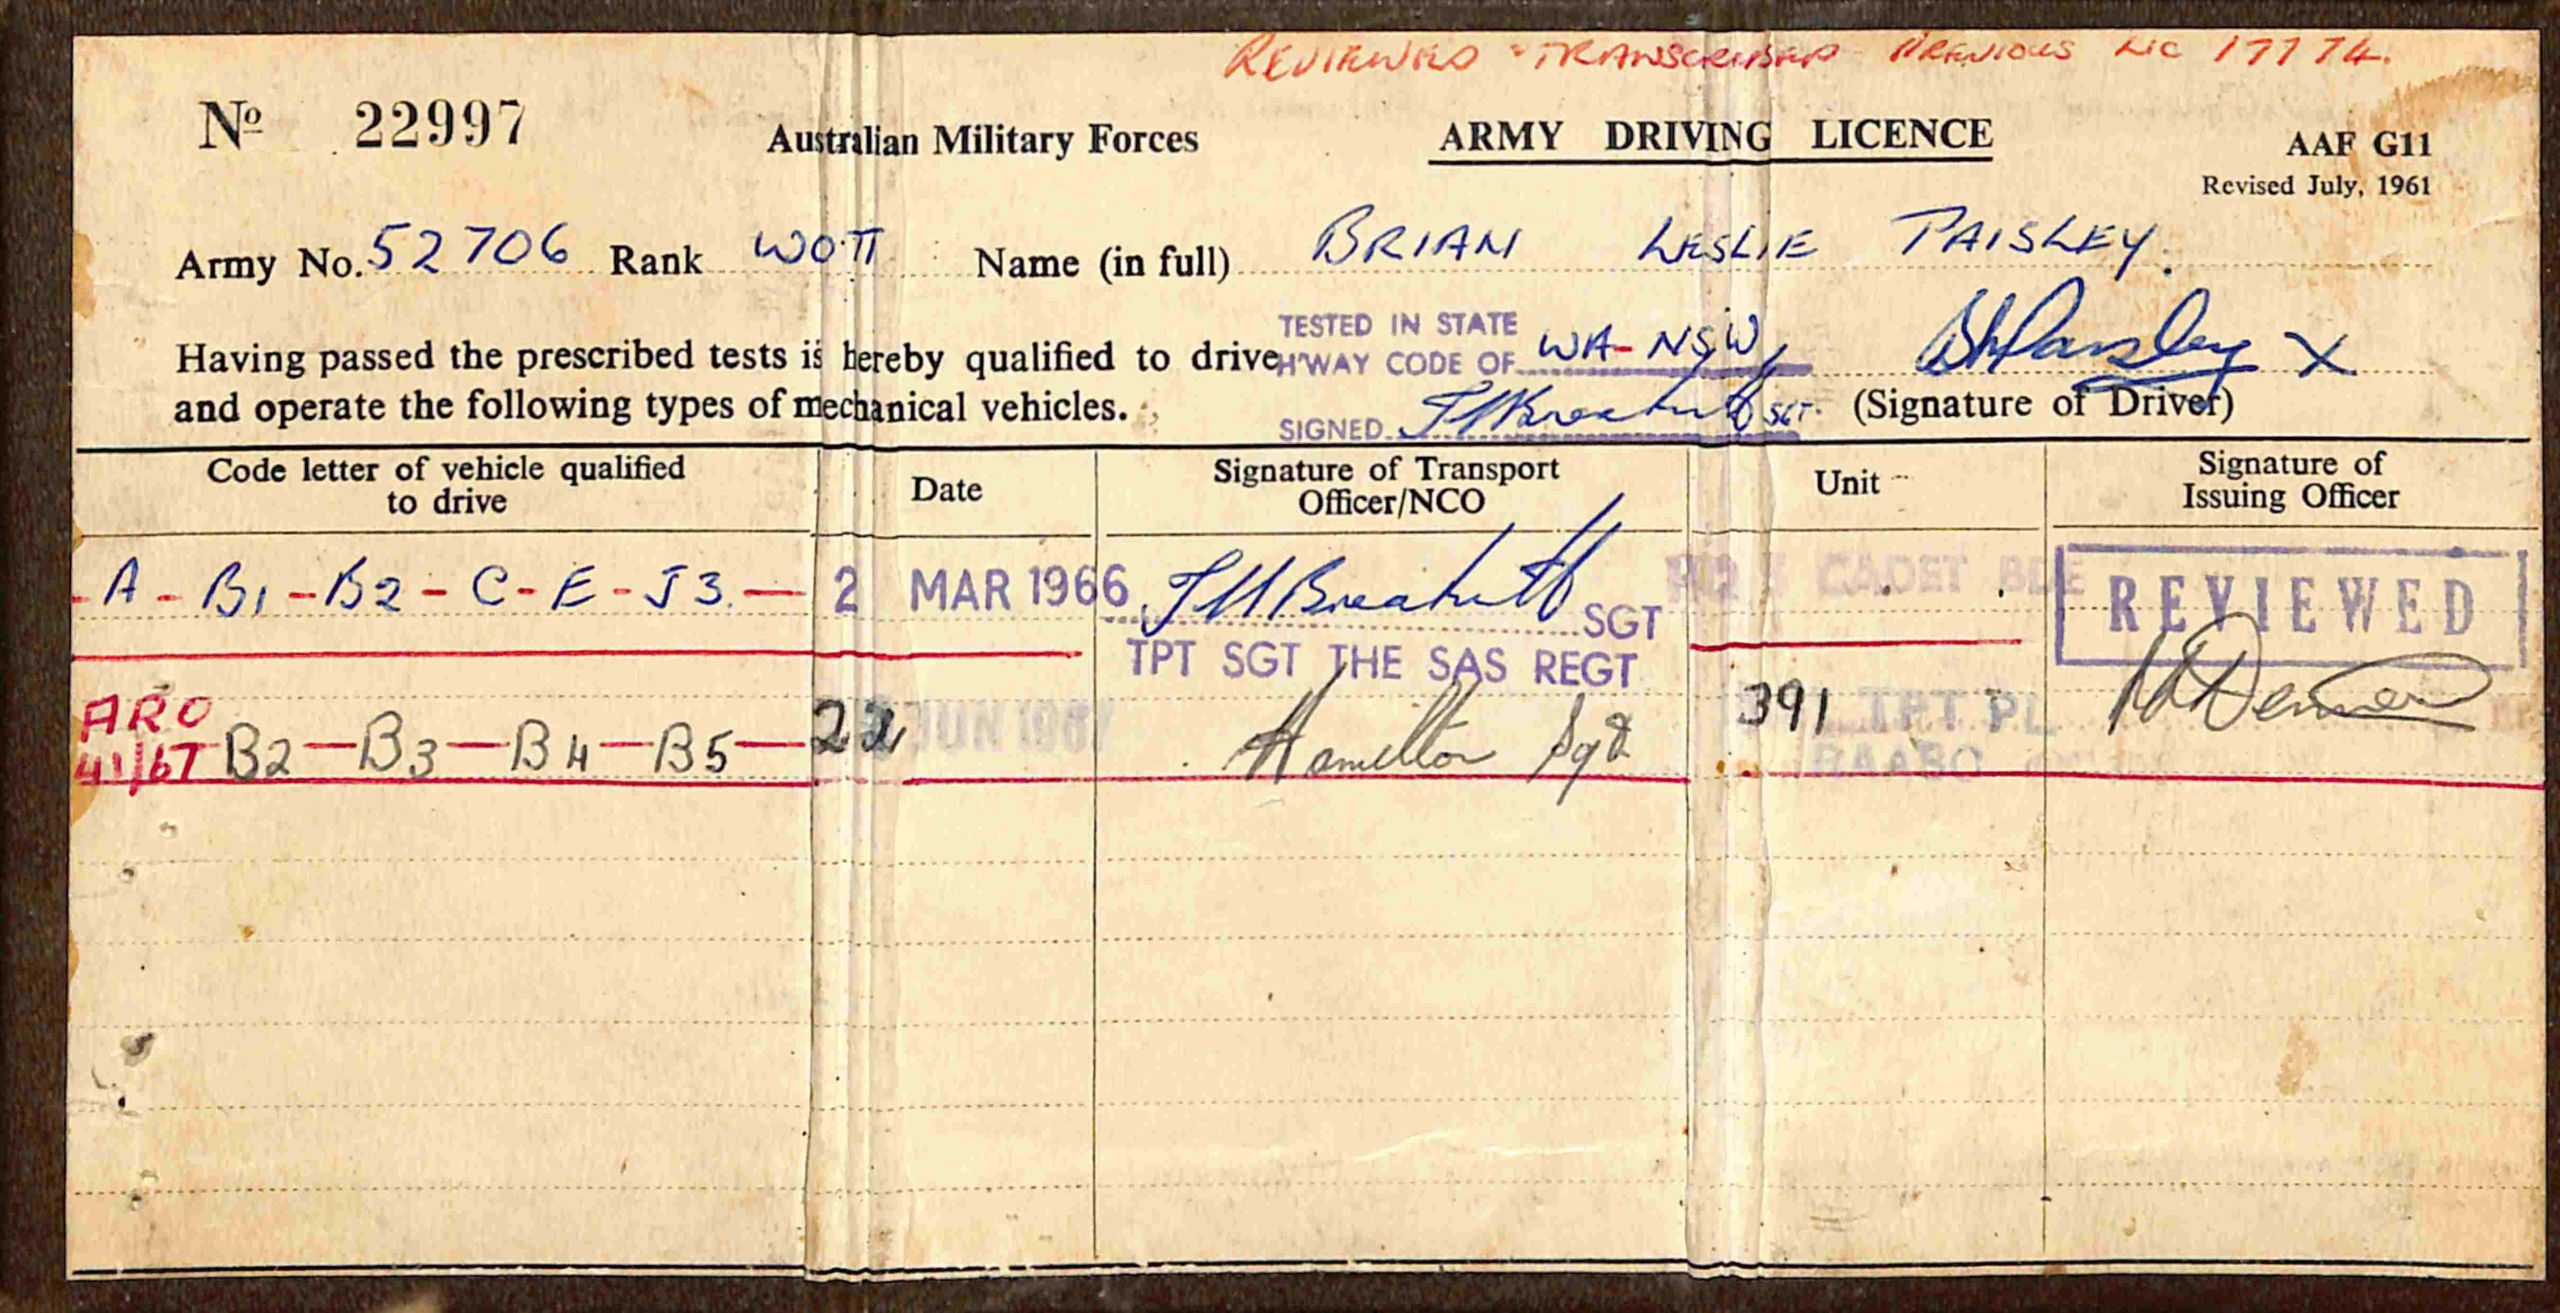 REVIEWED & TRANSCRIBED PREVIOUS LIC 17774.
No 22997 Australian Military Forces ARMY DRIVING LICENCE AAF G11
Revised July, 1961
Army No. 52706 Rank WOII Name (in full) BRIAN LESLIE PAISLEY.
TESTED IN STATE
Having passed the prescribed tests is hereby qualified to drive H'WAY CODE OF WA-NSW BLPaisley X
and operate the following types of mechanical vehicles. SIGNED SGT. (Signature of Driver)
Code letter of vehicle qualified to drive
Date
Signature of Transport Officer/NCO
Unit
Signature of Issuing Officer
- A - B1 - B2 - C - E - J3. - 2 MAR 1966 SGT CADET BDE REVIEWED
TPT SGT THE SAS REGT
ARO
41/67 B2 - B3 - B4 - B5 - 22 JUN 1967 Hamilton Sgt 391 TPT PL
RAASC